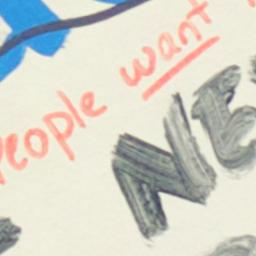 People want
NE